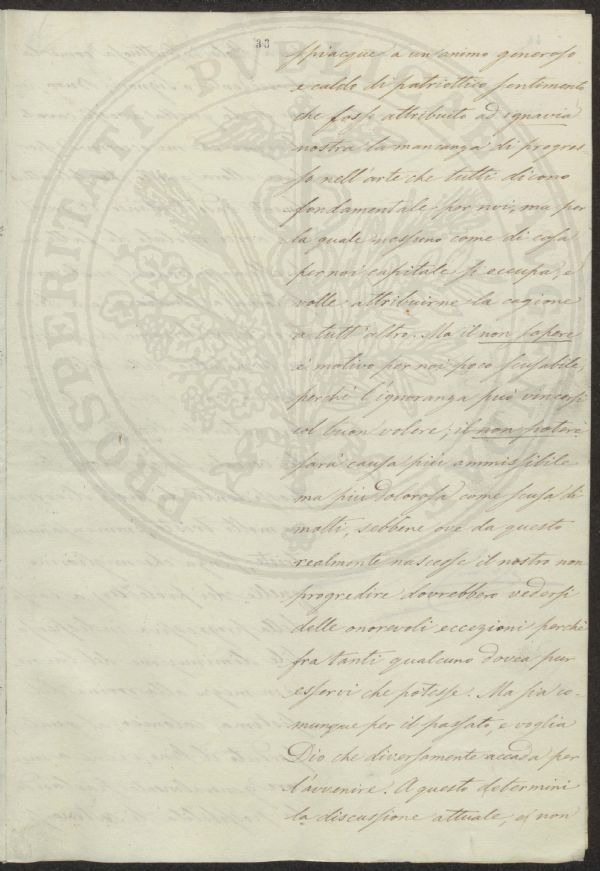 33
spiacque a un'animo generoso
e caldo di patriottico sentimento
che fosse attribuito ad ignavia
nostra la mancanza di progres-
so nell'arte che tutti dicono
fondamentale per noi, ma per
la quale nessuno come di cosa
per noi capitale si occupa, e
volle attribuirne la cagione
a tutt'altro. Ma il non sapere
è motivo per noi poco scusabile,
perchè l'ignoranza può vincersi
col buon volere; il non potere
sarà causa più ammissibile
ma più dolorosa come scusa di
molti, sebbene ove da questo
realmente nascesse il nostro non
progredire dovrebbero vedersi
delle onorevoli eccezioni perchè
fra tanti qualcuno dovea pur
esservi che potesse. Ma sia co-
munque per il passato, e voglia
Dio che diversamente accada per
l'avvenire. A questo determini
la discussione attuale, ci non
PROSPERITATI